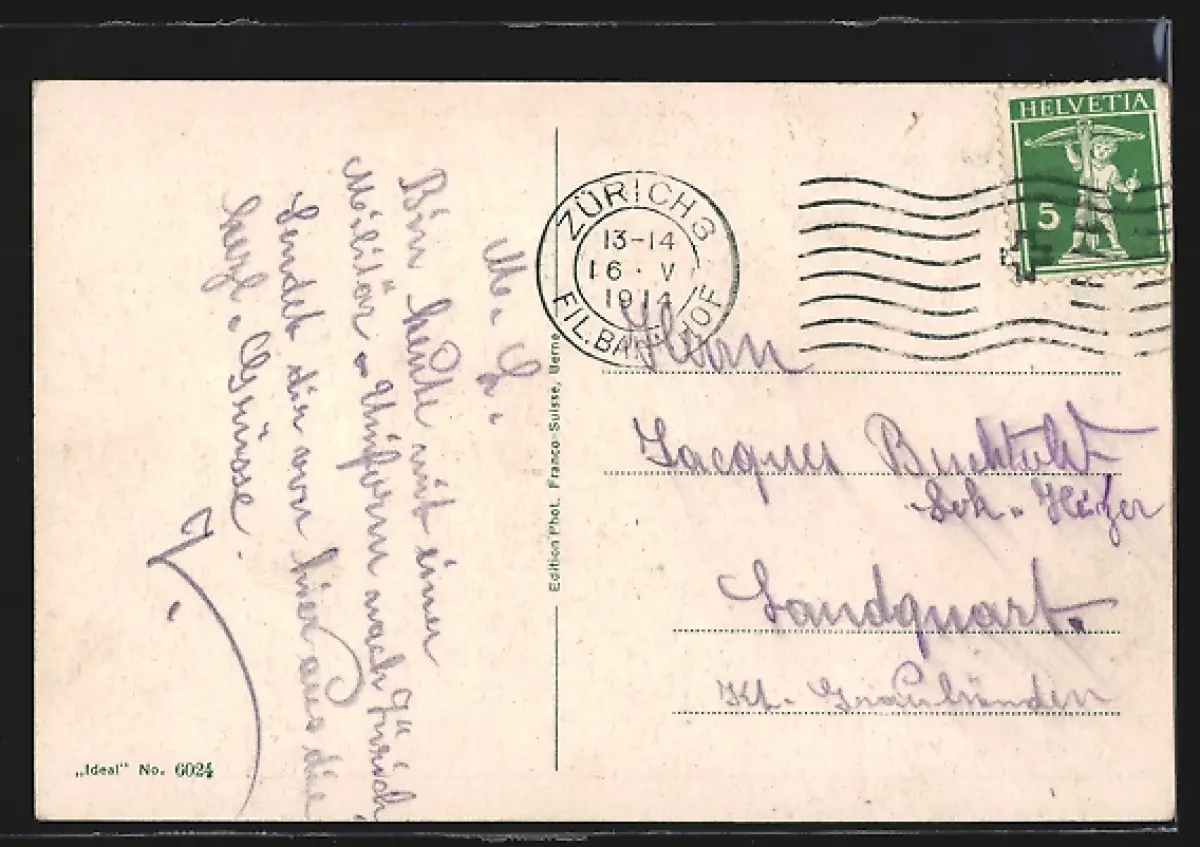 M. L.
Bin heute mit einer
Militär - Uniform nach Zürich
Sendet dir von hier aus die
herzl. Grüsse.
J.
„Ideal“ No. 6024
Edition Phot. Franco-Suisse, Berne
ZÜRICH 3
13-14
16. V
1914
FIL. BAHNHOF
HELVETIA
5
Herrn
Jacques
Lok. Heizer
Landquart.
Kt. Graubünden